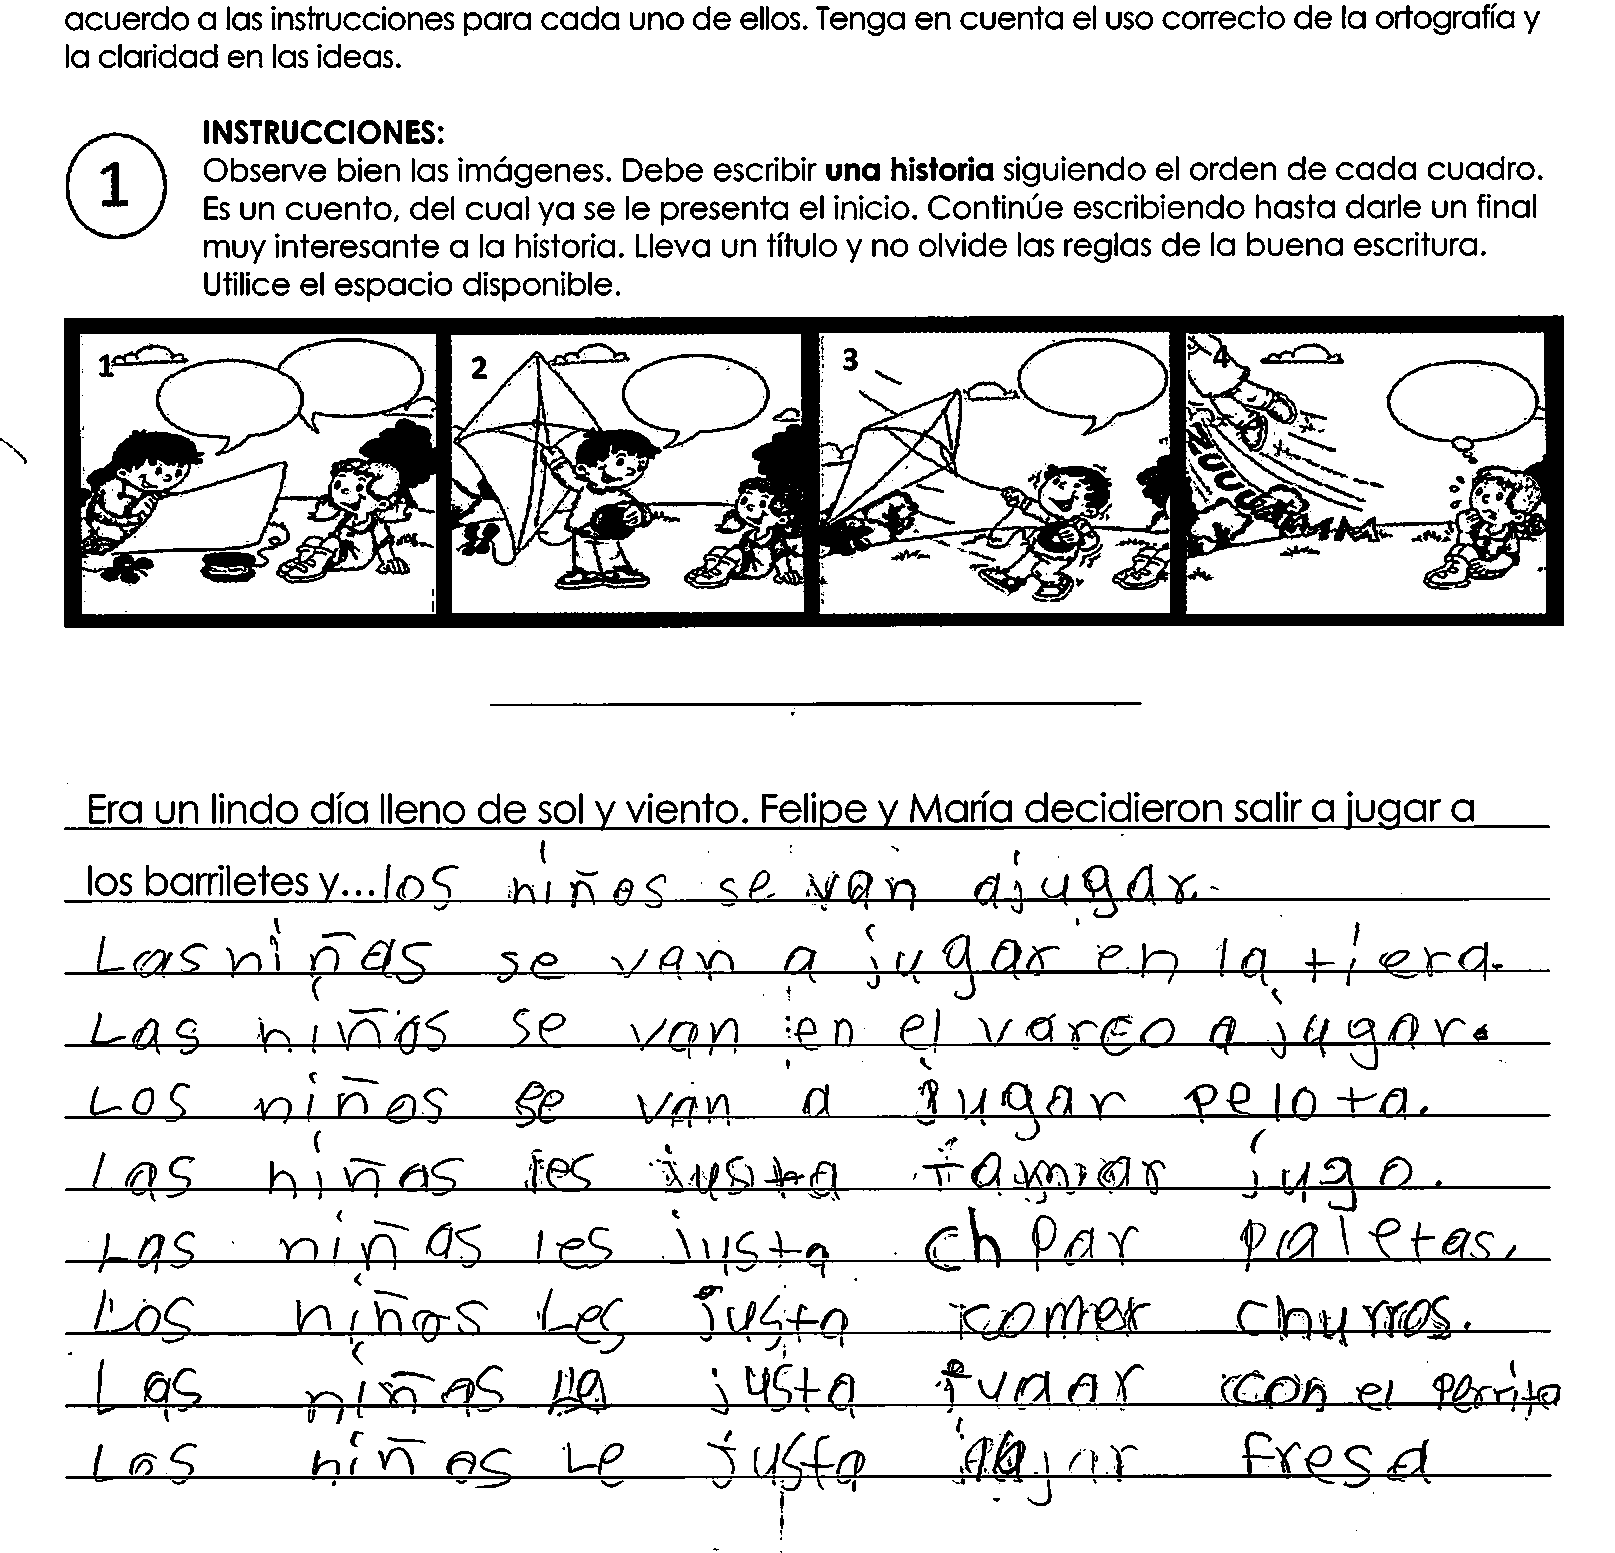 acuerdo a las instrucciones para cada uno de ellos. Tenga en cuenta el uso correcto de la ortografía y
la claridad en las ideas.
1
INSTRUCCIONES:
Observe bien las imágenes. Debe escribir una historia siguiendo el orden de cada cuadro.
Es un cuento, del cual ya se le presenta el inicio. Continúe escribiendo hasta darle un final
muy interesante a la historia. Lleva un título y no olvide las reglas de la buena escritura.
Utilice el espacio disponible.
1 2 3 4
Era un lindo día lleno de sol y viento. Felipe y María decidieron salir a jugar a
los barriletes y...los niños se van ajugar.
Las niñas se van a jugar en la tiera.
Las niñas se van en el varco a jugar.
Los niños se van a jugar pelota.
Las niñas les justa jugo.
Las niñas les justa chpar paletas.
Los niños Les justa comer churros.
Las niñas justa con el perrito
Los niños Le justa fresa